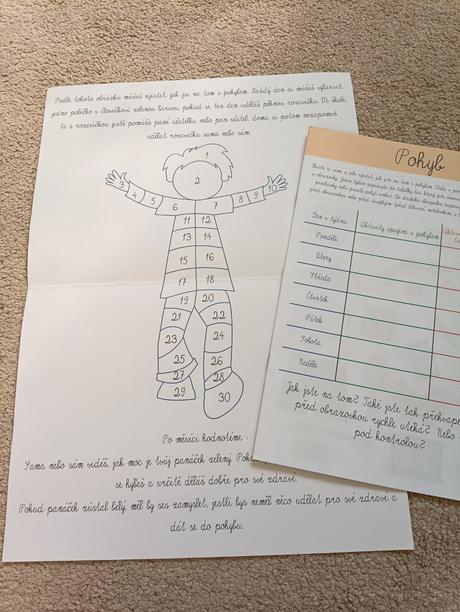 Podle tohoto obrázku můžeš zjistit, jak jsi na tom s pohybem. Každý den si můžeš vybarvit
jedno políčko v človíčkovi zelenou barvou, pokud si ten den uděláš pěknou rozcvičku. Ve škole
ti s rozcvičkou jistě pomůže paní učitelka nebo pan učitel, doma si potom nezapomeň
udělat rozcvičku sama nebo sám.
1
2
3 4 5 6 7 8 9 10
11 12
13 14
15 16
17 18
19 20
21 22
23 24
25 26
27 28
29 30
Po měsíci hodnotíme :
Sama nebo sám vidíš, jak moc je tvůj panáček zelený.
se hýbeš a určitě děláš dobře pro své zdraví.
Pokud panáček zůstal bílý, měl by ses zamyslet, jestli bys neměl něco udělat pro své zdraví a
dát se do pohybu.
Pohyb
Den v týdnu
Aktivity spojené s pohybem
Pondělí
Úterý
Středa
Čtvrtek
Pátek
Sobota
Neděle
Jak jste na tom? Také jste tak
před obrazovkou rychle utíká? Nebo
pod kontrolou?